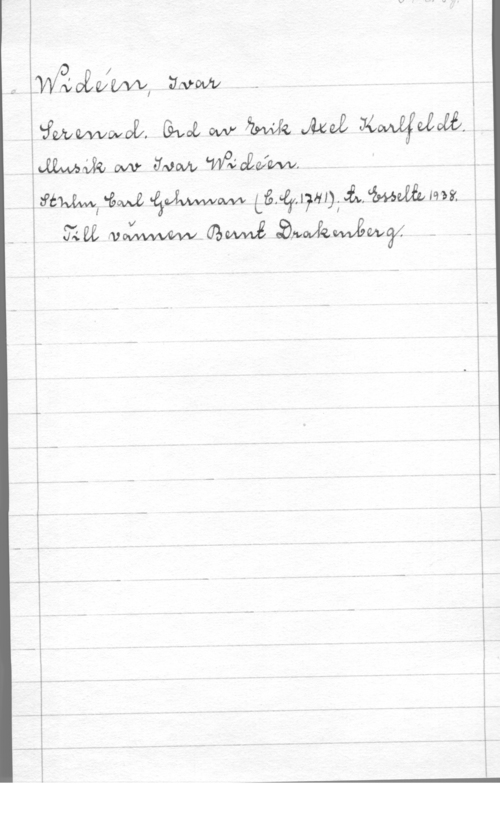 Widéen, Ivar
Serenad. Ord av Erik Axel Karlfeldt.
Musik av Ivar Widéen.
Sthlm, Carl Gehrman (C.G. 1741), tr. Esselte 1938.
Till vännen Bernt Drakenberg.